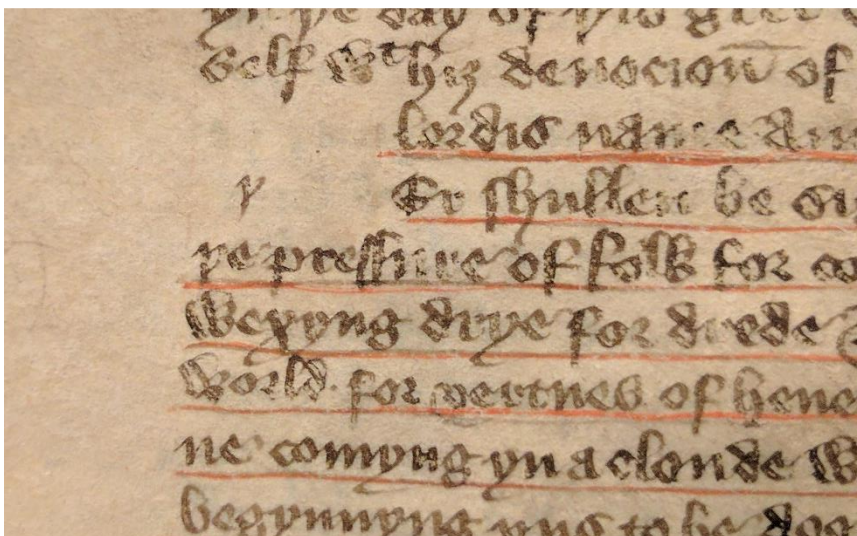 yn þe day of his gret
self wᵗ his deuocioū of
lordis name Am
þ Er shullen be si
þe pressure of folk for co
wexyng drye for drede
world. for vertues of heue
ne comyng yn a cloude w
begynnyng þus to be doo